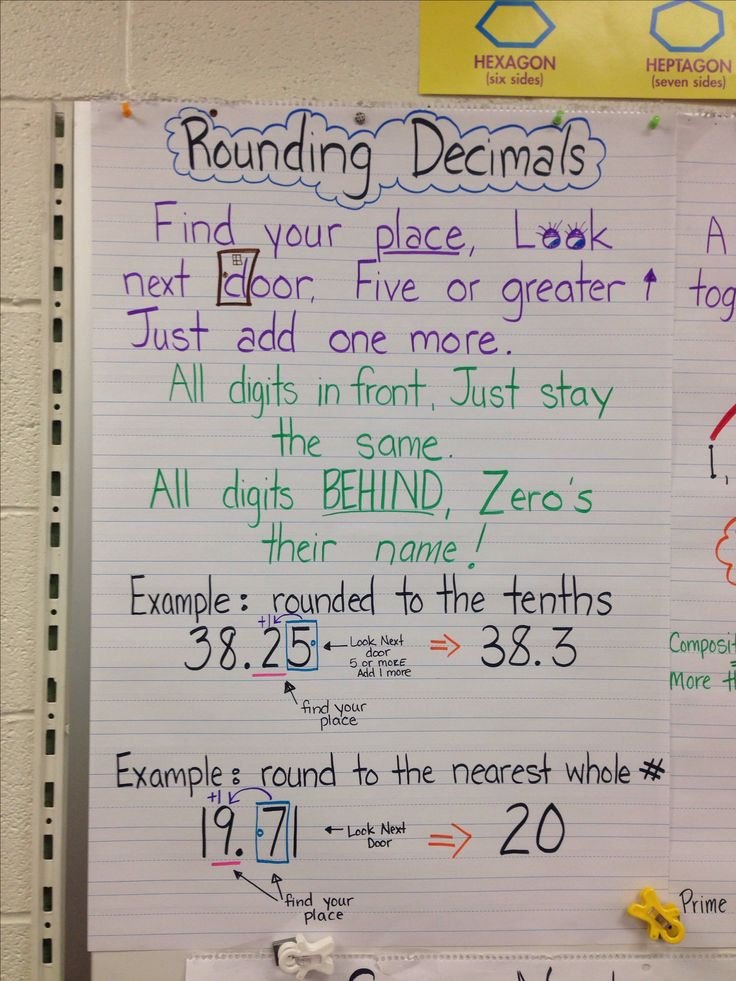 HEXAGON
(six sides)
HEPTAGON
(seven sides)
Rounding Decimals
Find your place, Look
next door, Five or greater ↑
Just add one more.
All digits in front, Just stay
the same.
All digits BEHIND, Zero's
their name!
Example: rounded to the tenths
+1
38.25
← Look Next
door
5 or more
Add 1 more
⇒ 38.3
find your
place
Example: round to the nearest whole #
+1
19.71
← Look Next
Door
⇒ 20
find your
place
A
tog
I,
Composit
More th
Prime